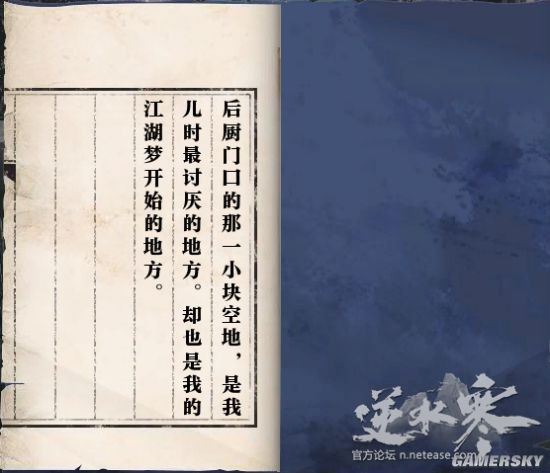 后厨门口的那一小块空地，是我
儿时最讨厌的地方。却也是我的
江湖梦开始的地方。
逆水寒
官方论坛 n.netease.com
GAMERSKY